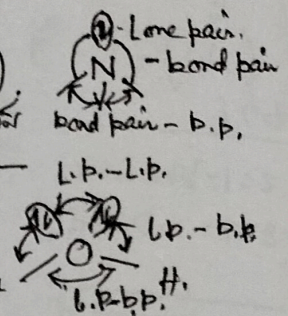 - Lone pair.
N - bond pair
bond pair - b.p.
L.p. - L.p.
l.p. - b.p.
O
H.
b.p - b.p.